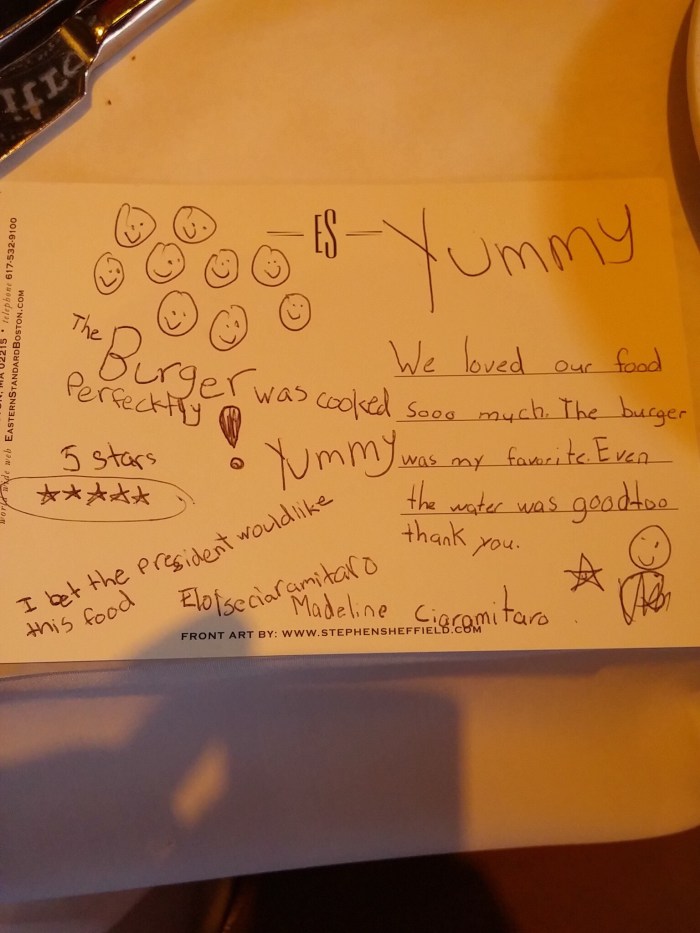 ES
Yummy
The
Burger was cooked
Perfecktly !
5 stars
Yummy
We loved our food
sooo much. The burger
was my favorite. Even
the water was good too
thank you.
I bet the president would like
this food
Eloise ciaramitaro
Madeline Ciaramitaro .
FRONT ART BY: WWW.STEPHENSHEFFIELD.COM
MA 02215 • telephone 617-532-9100
world wide web EASTERNSTANDARDBOSTON.COM